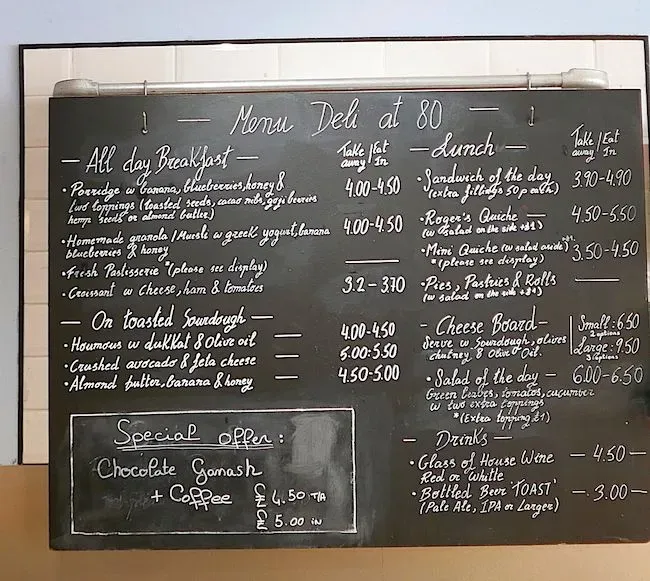 Menu Deli at 80
All day Breakfast
Take away / Eat In
• Porridge w banana, blueberries, honey & two toppings (toasted seeds, cacao nibs, goji berries hemp seeds or almond butter) 4.00-4.50
• Homemade granola / Muesli w greek yogurt, banana blueberries & honey 4.00-4.50
• Fresh Patisserie *(please see display)
• Croissant w cheese, ham & tomatoes 3.2 - 3.70
On toasted Sourdough
• Houmous w dukkat & Olive oil 4.00-4.50
• Crushed avocado & feta cheese 5.00:5.50
• Almond butter, banana & honey 4.50-5.00
Special offer:
Chocolate Ganash
+ Coffee
4.50 T/A
5.00 in
Lunch
Take away / Eat In
• Sandwich of the day 3.90-4.90
(extra fillings 50p each)
• Roger's Quiche 4.50-5.50
(w salad on the side +£1)
• Mini Quiche (w salad aside) +£1 3.50-4.50
*(please see display)
• Pies, Pastries & Rolls
(w salad on the side +£1)
- Cheese Board -
Serve w Sourdough, olives
chutney & Olive Oil.
Small: 6.50
2 options
Large: 9.50
3 options
• Salad of the day - 6.00-6.50
Green leaves, tomatos, cucumber
w two extra toppings
*(Extra topping £1)
- Drinks -
• Glass of House Wine - 4.50 -
Red or White
• Bottled Beer 'TOAST' - 3.00 -
(Pale Ale, IPA or Larger)